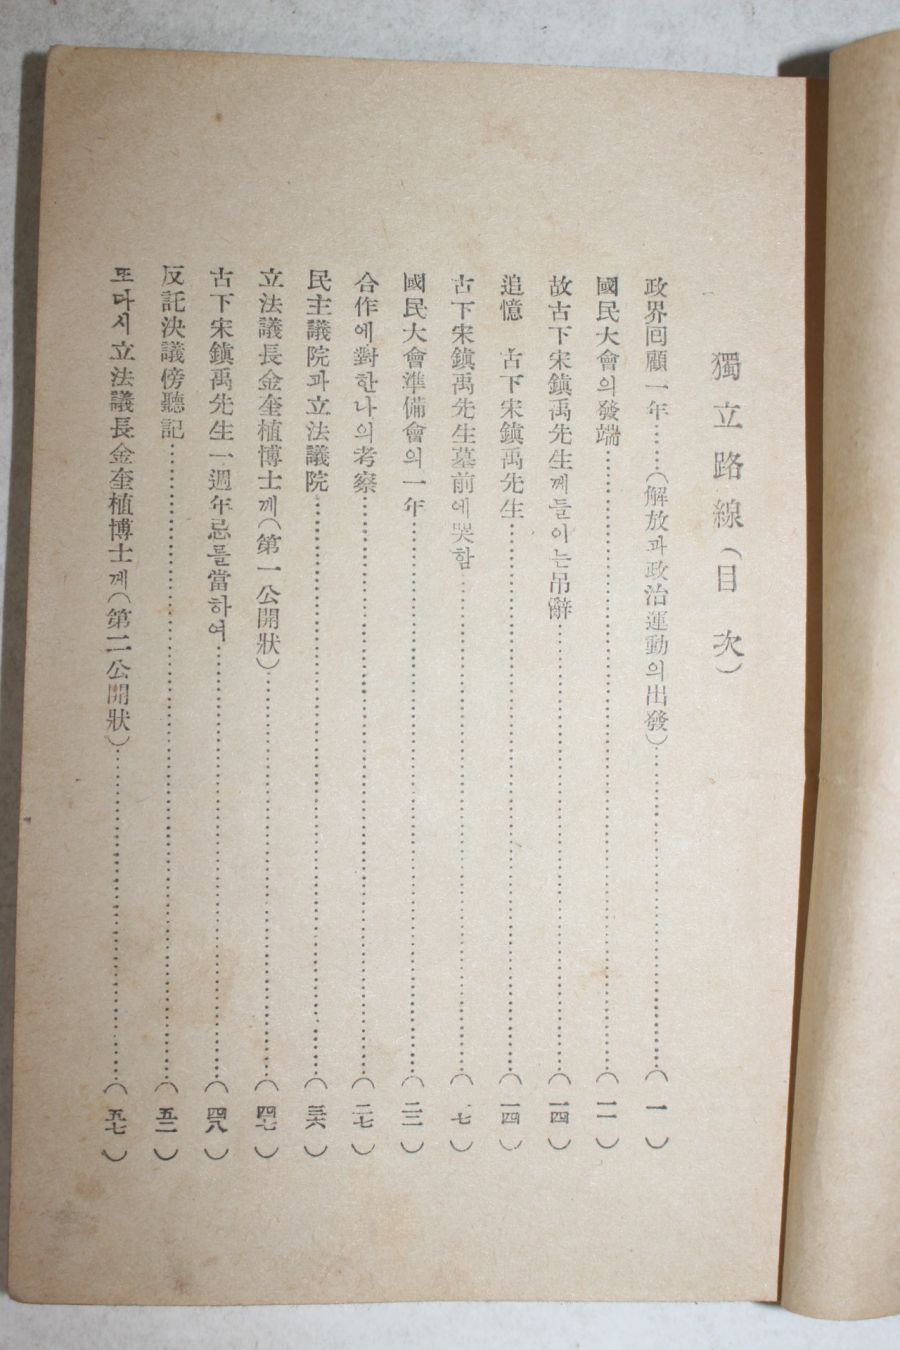 獨立路線(目 次)
政界回顧一年……(解放과政治運動의出發)……(一)
國民大會의發端……(一一)
故古下宋鎭禹先生께들이는吊辭……(一四)
追憶 古下宋鎭禹先生……(一四)
古下宋鎭禹先生墓前에哭함……(一七)
國民大會準備會의一年……(二二)
合作에對한나의考察……(二七)
民主議院과立法議院……(三六)
立法議長金奎植博士께(第一公開狀)……(四七)
古下宋鎭禹先生一週年忌를當하여……(四八)
反託決議傍聽記……(五二)
또다시立法議長金奎植博士께(第二公開狀)……(五七)